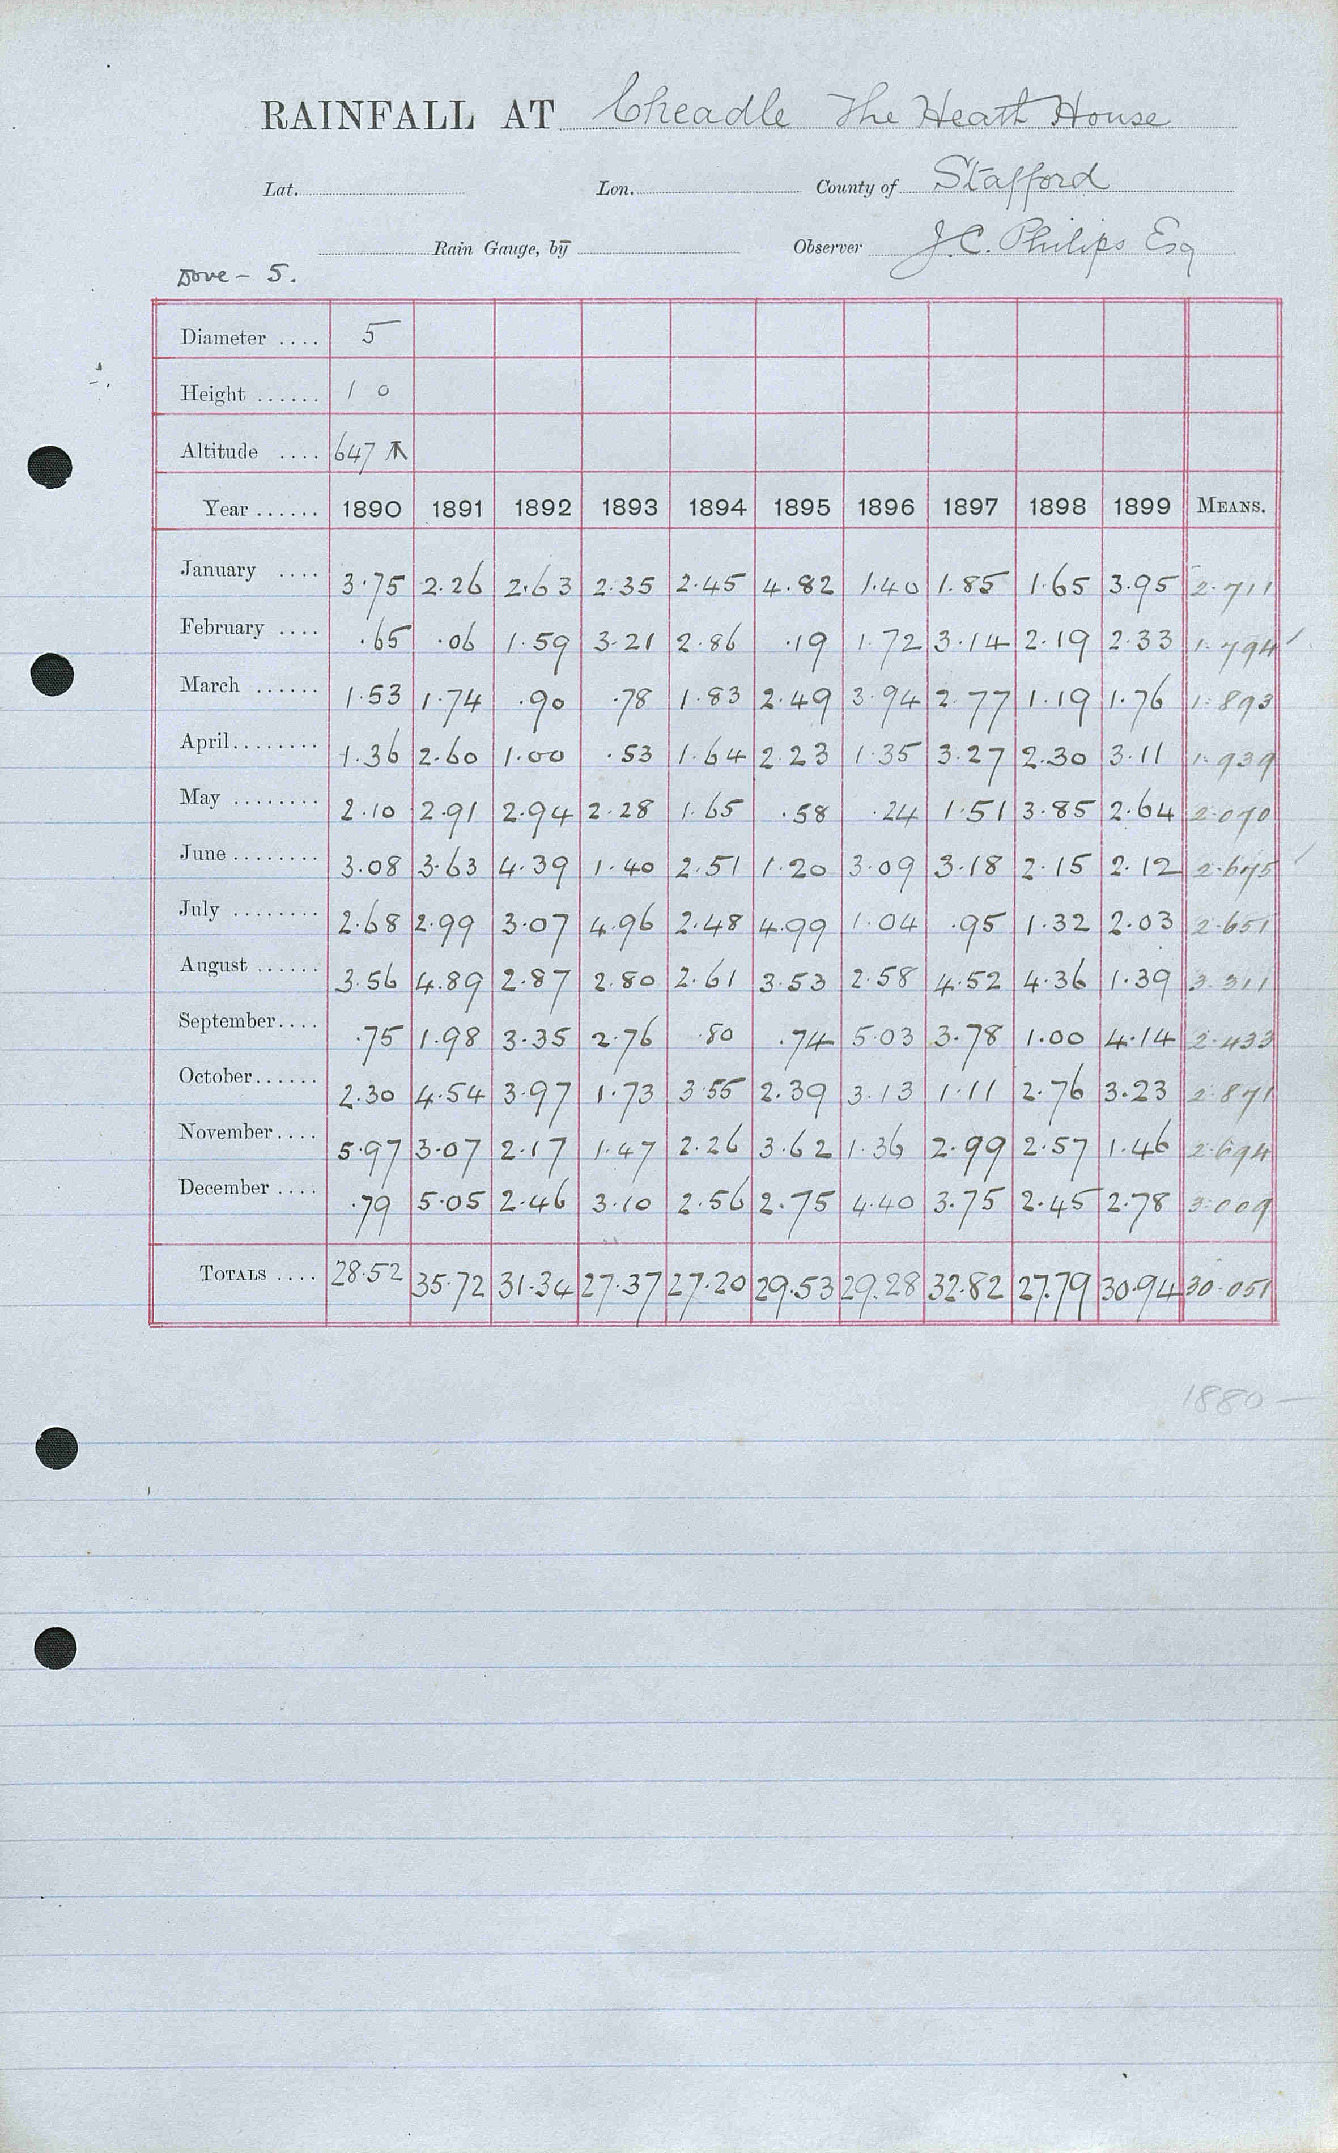 RAINFALL AT Cheadle The Heath House
Lat. Lon. County of Stafford
Rain Gauge, by Observer J.C. Philips Esq
Dove - 5.
Diameter .... 5
Height ...... 1 0
Altitude .... 647
Year ...... 1890 1891 1892 1893 1894 1895 1896 1897 1898 1899 MEANS.
January .... 3.75 2.26 2.63 2.35 2.45 4.82 1.40 1.85 1.65 3.95 2.711
February .... .65 .06 1.59 3.21 2.86 .19 1.72 3.14 2.19 2.33 1.794
March ...... 1.53 1.74 .90 .78 1.83 2.49 3.94 2.77 1.19 1.76 1.893
April........ 1.36 2.60 1.00 .53 1.64 2.23 1.35 3.27 2.30 3.11 1.939
May ........ 2.10 2.91 2.94 2.28 1.65 .58 .24 1.51 3.85 2.64 2.070
June ........ 3.08 3.63 4.39 1.40 2.51 1.20 3.09 3.18 2.15 2.12 2.675
July ........ 2.68 2.99 3.07 4.96 2.48 4.99 1.04 .95 1.32 2.03 2.651
August ...... 3.56 4.89 2.87 2.80 2.61 3.53 2.58 4.52 4.36 1.39 3.311
September.... .75 1.98 3.35 2.76 .80 .74 5.03 3.78 1.00 4.14 2.433
October...... 2.30 4.54 3.97 1.73 3.55 2.39 3.13 1.11 2.76 3.23 2.871
November.... 5.97 3.07 2.17 1.47 2.26 3.62 1.36 2.99 2.57 1.46 2.694
December .... .79 5.05 2.46 3.10 2.56 2.75 4.40 3.75 2.45 2.78 3.009
TOTALS .... 28.52 35.72 31.34 27.37 27.20 29.53 29.28 32.82 27.79 30.94 30.051
1880 —